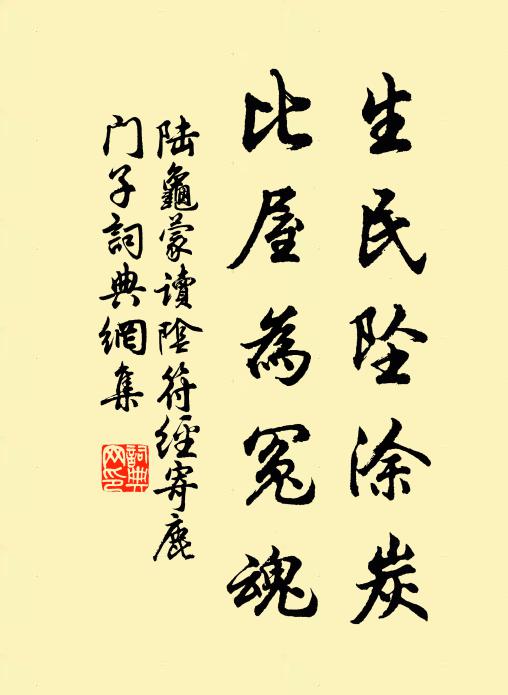 生民墜涂炭
比屋為冤魂
陆龜蒙读陰符經寄鹿
门子詞典網集
詞典網印